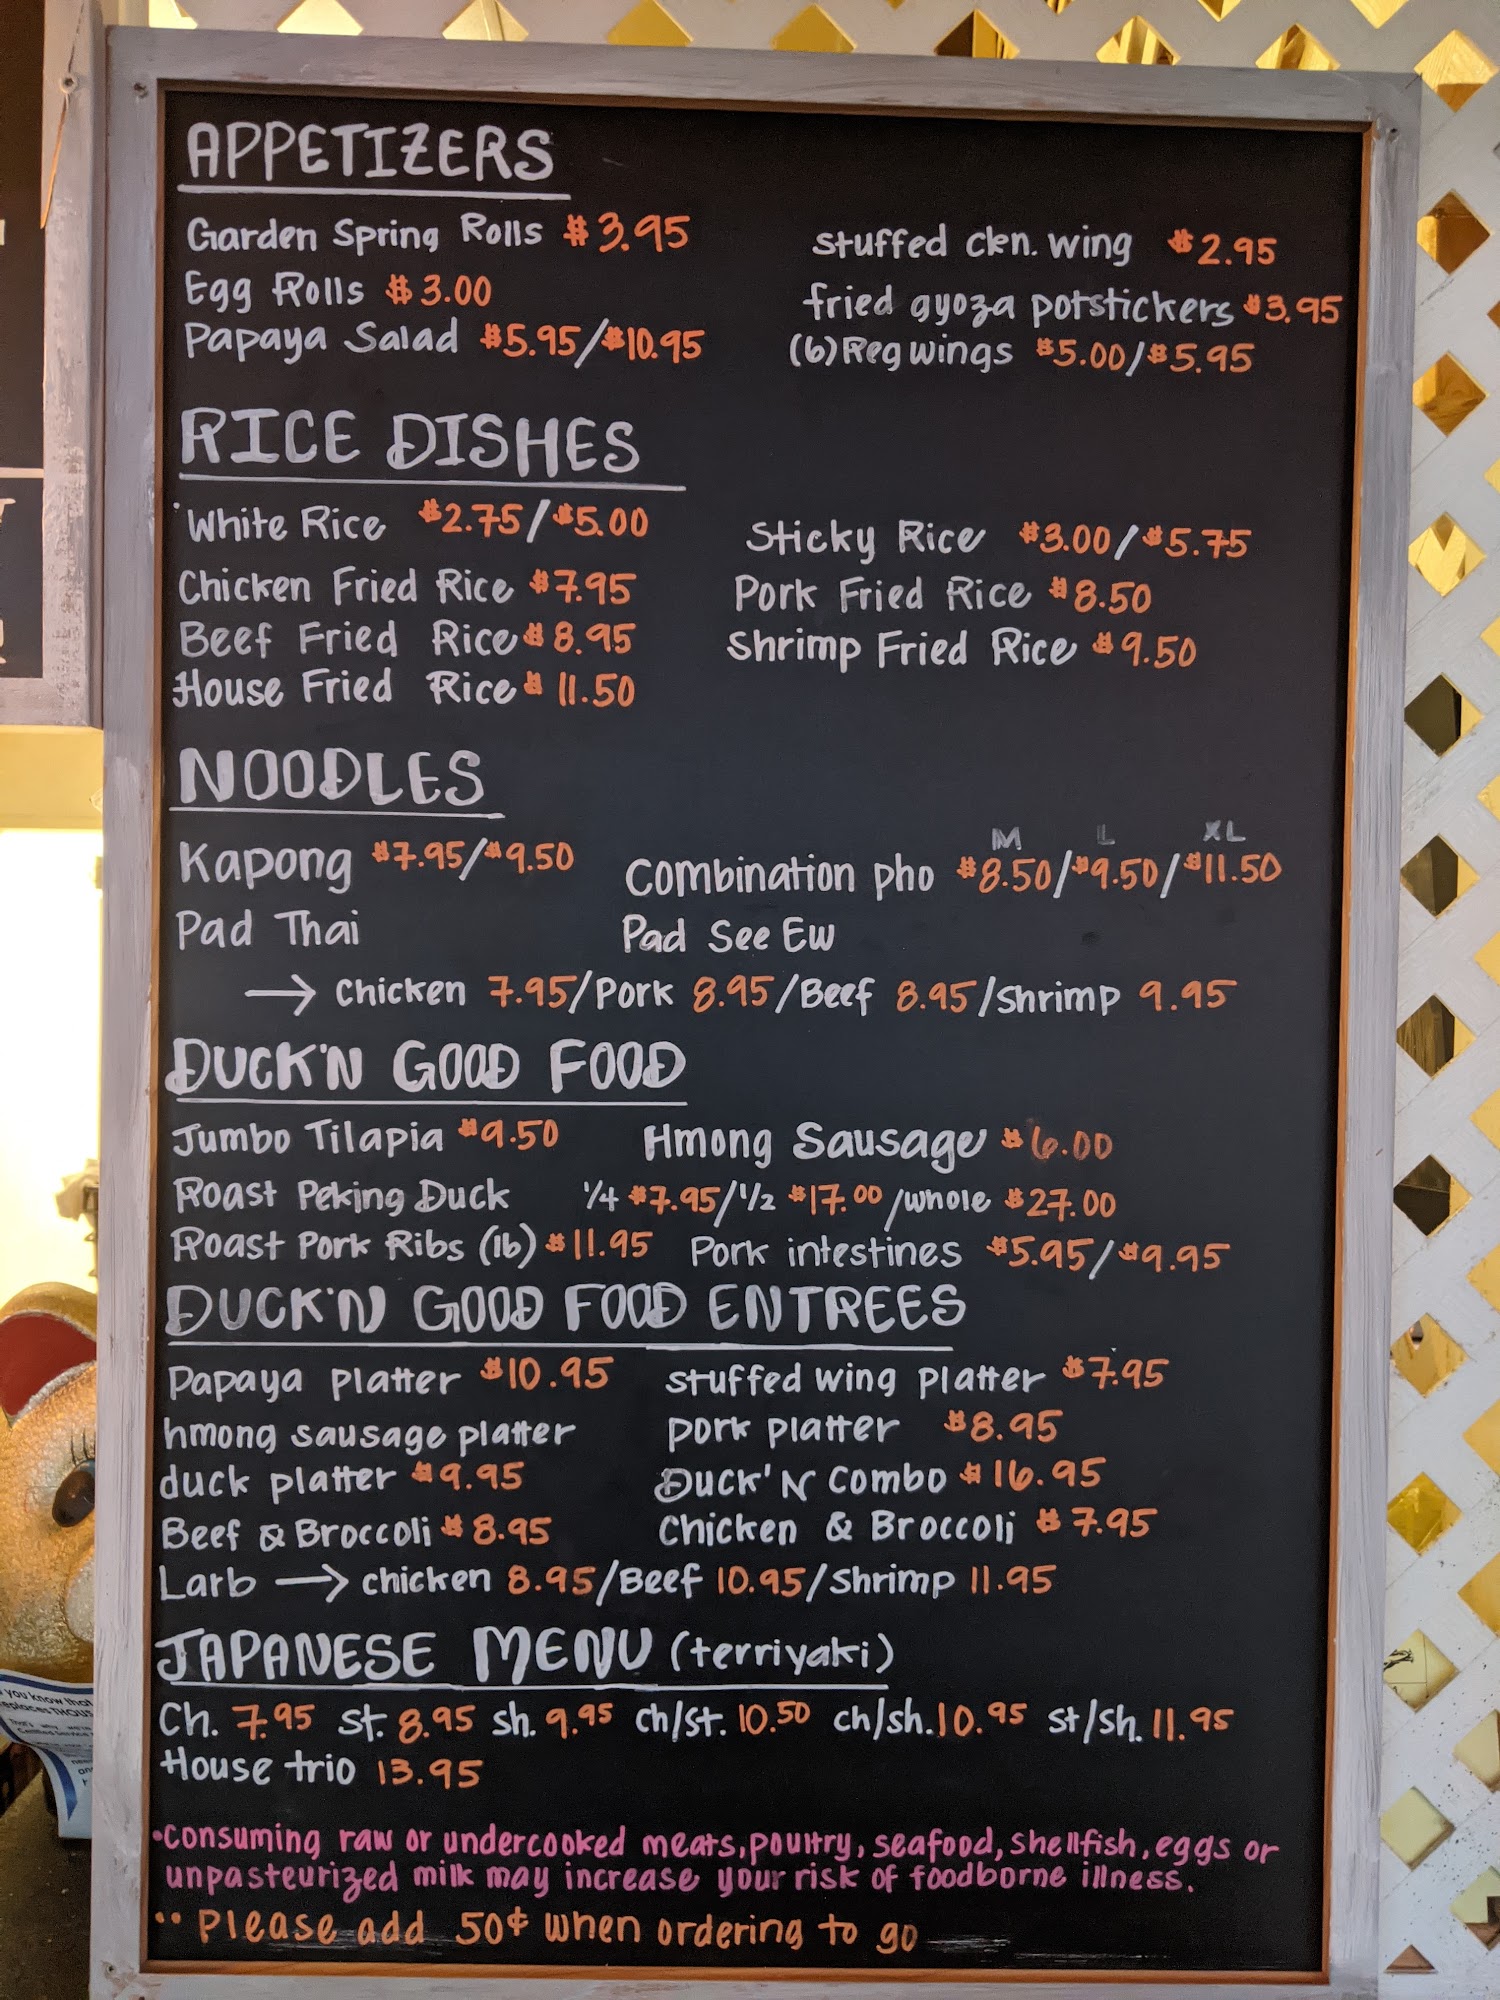 APPETIZERS
Garden Spring Rolls $3.95
stuffed ckn. wing $2.95
Egg Rolls $3.00
fried gyoza potstickers $3.95
Papaya Salad $5.95/$10.95
(6) Reg wings $5.00/$5.95
RICE DISHES
White Rice $2.75/$5.00
Sticky Rice $3.00/$5.75
Chicken Fried Rice $7.95
Pork Fried Rice $8.50
Beef Fried Rice $8.95
Shrimp Fried Rice $9.50
House Fried Rice $11.50
NOODLES
M L XL
Kapong $7.95/$9.50
Combination pho $8.50/$9.50/$11.50
Pad Thai
Pad See Ew
→ Chicken 7.95/Pork 8.95/Beef 8.95/Shrimp 9.95
DUCK'N GOOD FOOD
Jumbo Tilapia $9.50
Hmong Sausage $6.00
Roast Peking Duck 1/4 $7.95/1/2 $17.00/whole $27.00
Roast Pork Ribs (lb) $11.95
Pork intestines $5.95/$9.95
DUCK'N GOOD FOOD ENTREES
Papaya platter $10.95
stuffed wing platter $7.95
hmong sausage platter
pork platter $8.95
duck platter $9.95
Duck'N Combo $16.95
Beef & Broccoli $8.95
Chicken & Broccoli $7.95
Larb → chicken 8.95/Beef 10.95/Shrimp 11.95
JAPANESE MENU (terriyaki)
Ch. 7.95 st. 8.95 sh. 9.95 ch/st. 10.50 ch/sh. 10.95 st/sh. 11.95
House trio 13.95
•Consuming raw or undercooked meats, poultry, seafood, shellfish, eggs or
unpasteurized milk may increase your risk of foodborne illness.
•• Please add 50¢ when ordering to go
you know that